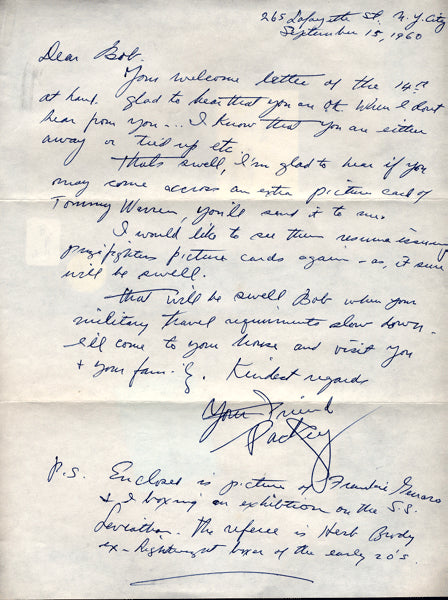 265 Lafayette St. N.Y. City
September 15, 1960
Dear Bob.
Your welcome letter of the 14th
at hand. Glad to hear that you are OK. When I dont
hear from you... I know that you are either
away or tied up etc.
Thats swell, I'm glad to hear if you
may come across an extra picture card of
Tommy Warren, you'll send it to me.
I would like to see them resume issuing
prizefighters picture cards again - as, it sure
will be swell.
That will be swell Bob when your
military travel requirments slow down.
I'll come to your house and visit you
& your family. Kindest regards
Your Friend
Packey
P.S. Enclosed is picture of Frankie Genaro
& I boxing an exhibition on the S.S.
Leviathan. The referee is Herb Brody
ex-lightweight boxer of the early 20's.